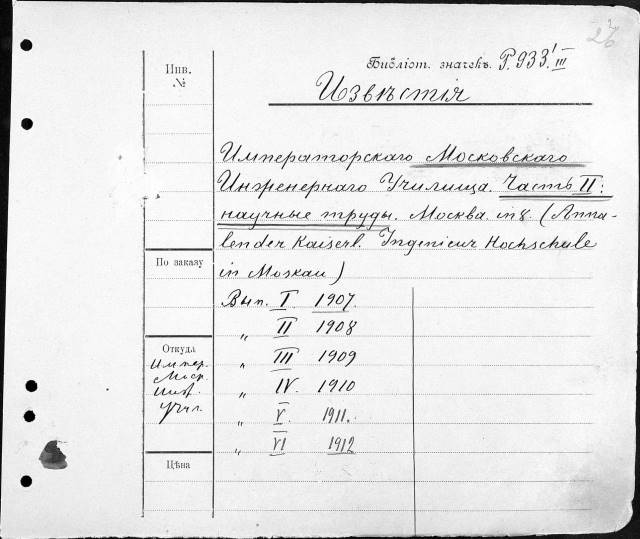 26
Инв.
№
Библіот. значекъ. Р.933.' III
Извѣстія
Императорскаго Московскаго
Инженернаго Училища. Часть II:
научные труды. Москва. in 8. (Anna-
len der Kaiserl. Ingenieur Hochschule
in Moskau)
По заказу
Вып. I 1907.
„ II 1908
Откуда
Импер.
Моск.
Инж.
Учил.
„ III 1909
„ IV. 1910
„ V. 1911.
„ VI 1912
Цѣна